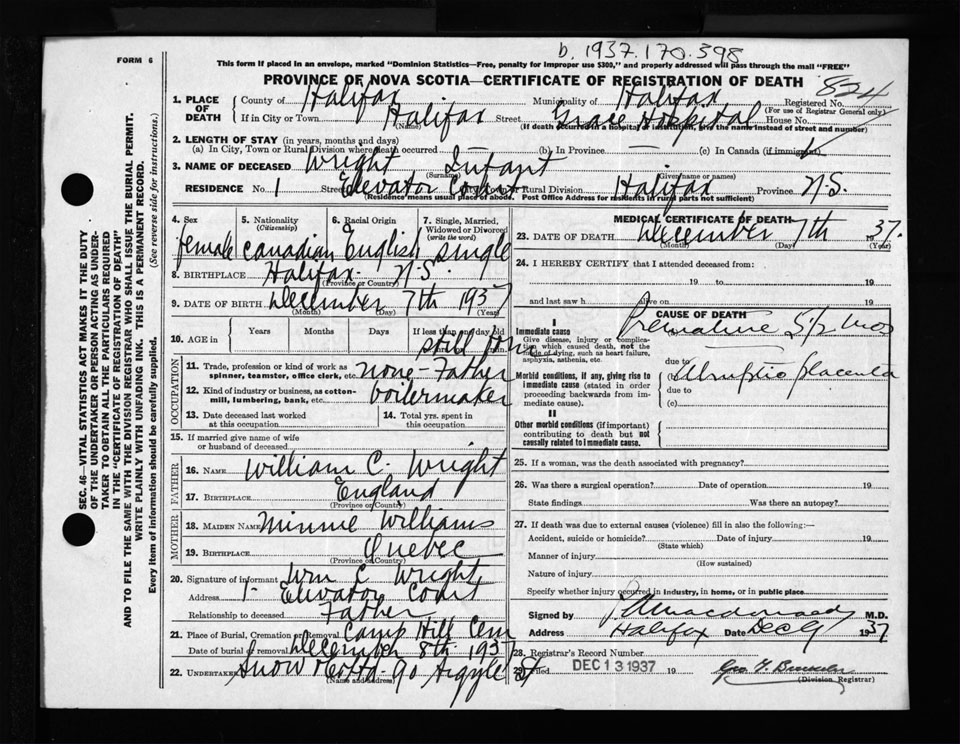 b. 1937.170.398
FORM 6
This form if placed in an envelope, marked "Dominion Statistics—Free, penalty for improper use $300," and properly addressed will pass through the mail "FREE"
PROVINCE OF NOVA SCOTIA—CERTIFICATE OF REGISTRATION OF DEATH
824
1. PLACE OF DEATH County of Halifax Municipality of Halifax Registered No.
(For use of Registrar General only)
If in City or Town Halifax Street Grace Hospital House No.
(Name) (If death occurred in a hospital or institution, give the name instead of street and number)
2. LENGTH OF STAY (in years, months and days)
(a) In City, Town or Rural Division where death occurred (b) In Province — (c) In Canada (if immigrant)
3. NAME OF DECEASED Wright Infant
(Surname) (Given name or names)
RESIDENCE No. 1 Street Elevator Court City, Town or Rural Division Halifax Province N.S.
(Residence means usual place of abode. Post Office Address for residents in rural parts not sufficient)
4. Sex female
5. Nationality (Citizenship) Canadian
6. Racial Origin English
7. Single, Married, Widowed or Divorced (write the word) single
8. BIRTHPLACE Halifax N.S.
(Province or Country)
9. DATE OF BIRTH December 7th 1937
(Month) (Day) (Year)
10. AGE in Years Months Days If less than one day old
still born
11. Trade, profession or kind of work as spinner, teamster, office clerk, etc. none - Father
12. Kind of industry or business, as cotton-mill, lumbering, bank, etc. boilermaker
13. Date deceased last worked at this occupation
14. Total yrs. spent in this occupation
OCCUPATION
15. If married give name of wife or husband of deceased
FATHER
16. NAME William C. Wright
17. BIRTHPLACE England
(Province or Country)
MOTHER
18. MAIDEN NAME Minnie Williams
19. BIRTHPLACE Quebec
(Province or Country)
20. Signature of informant Wm C Wright
Address 1- Elevator Court
Relationship to deceased Father
21. Place of Burial, Cremation or Removal Camp Hill Cem
Date of burial or removal December 8th 1937
22. UNDERTAKER Snow & Co Ltd. 90 Argyle St
(Name and address)
MEDICAL CERTIFICATE OF DEATH
23. DATE OF DEATH December 7th 1937.
(Month) (Day) (Year)
24. I HEREBY CERTIFY that I attended deceased from:
19 to 19
and last saw h alive on 19
CAUSE OF DEATH
I
Immediate cause
Give disease, injury or complication which caused death, not the mode of dying, such as heart failure, asphyxia, asthenia, etc.
Premature 5 1/2 mos
due to
Morbid conditions, if any, giving rise to immediate cause (stated in order proceeding backwards from immediate cause).
Abruptio placenta
due to
(c)
II
Other morbid conditions (if important) contributing to death but not causally related to immediate cause.
25. If a woman, was the death associated with pregnancy?
26. Was there a surgical operation? Date of operation 19
State findings Was there an autopsy?
27. If death was due to external causes (violence) fill in also the following:—
Accident, suicide or homicide? Date of injury 19
(State which)
Manner of injury
(How sustained)
Nature of injury
Specify whether injury occurred in industry, in home, or in public place
Signed by Macdonald M.D.
Address Halifax Date Dec 9 1937
28. Registrar's Record Number
Filed DEC 13 1937 19
(Division Registrar)
SEC. 46—VITAL STATISTICS ACT MAKES IT THE DUTY
OF THE UNDERTAKER OR PERSON ACTING AS UNDER-
TAKER TO OBTAIN ALL THE PARTICULARS REQUIRED
IN THE "CERTIFICATE OF REGISTRATION OF DEATH"
AND TO FILE THE SAME WITH THE DIVISION REGISTRAR WHO SHALL ISSUE THE BURIAL PERMIT.
WRITE PLAINLY WITH UNFADING INK. THIS IS A PERMANENT RECORD.
Every item of information should be carefully supplied. (See reverse side for instructions.)